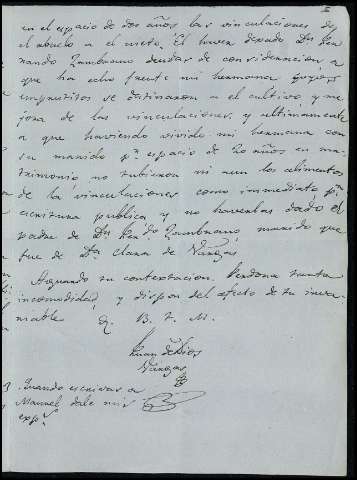 en el espacio de dos años las vinculaciones del
el abuelo a el nieto. El haver dejado Dn Fer
nando Zambrano deudas de consideracion a
que ha echo frente mi hermana cuyos
emprestitos se destinaron a el cultivo y me
jora de las vinculaciones, y ultimamente
a que haviendo vivido mi hermana con
su marido pr espacio de 20 años en ma
trimonio no tubieron ni aun los alimentos
de las vinculaciones como immediato pr
escritura publica y no haverlas dado el
padre de Dn Fer.do Zambrano, marido que
fue de Da Clara de Vargas
Aguardo tu contextacion. Perdona tanta
incomodidad, y dispon del afecto de tu inva
riable Q. B. T. M.
Juan de Dios
Vargas
Quando escrivas a
Manuel dale mis
exps